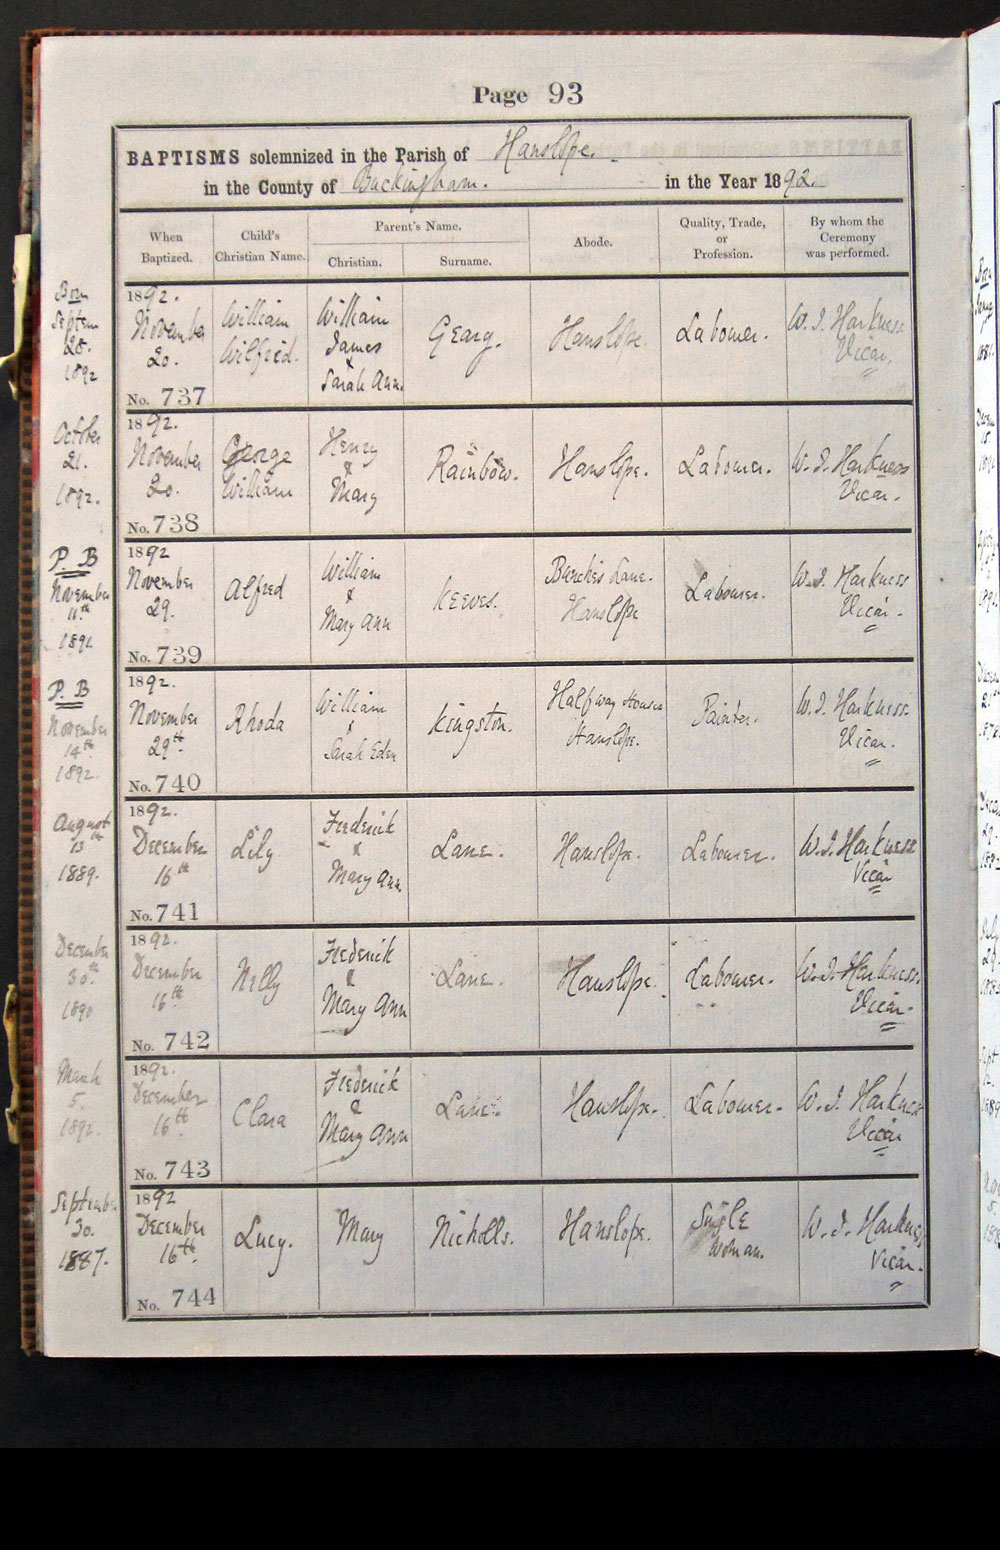 Page 93
BAPTISMS solemnized in the Parish of Hanslope.
in the County of Buckingham. in the Year 1892.
When Baptized. Child's Christian Name. Parent's Name. Christian. Surname. Abode. Quality, Trade, or Profession. By whom the Ceremony was performed.
Born
Septem
28.
1892
1892.
November
20.
No. 737
William
Wilfrid.
William
James
&
Sarah Ann.
Geary.
Hanslope.
Labourer.
W. J. Harkness
Vicar.
October
21.
1892.
1892.
November
20.
No. 738
George
William
Henry
&
Mary
Rainbow.
Hanslope.
Labourer.
W. J. Harkness
Vicar.
P. B
November
11th
1892
November
29.
No. 739
Alfred
William
&
Mary Ann
Keeves.
Lane.
Hanslope
Labourer.
W. J. Harkness
Vicar.
P. B
November
14th
1892.
1892.
November
29th.
No. 740
Rhoda
William
&
Sarah Eden
Kingston.
Halfway Houses
Hanslope.
Painter.
W. J. Harkness
Vicar.
August
13th
1889.
1892.
December
16th
No. 741
Lily
Frederick
&
Mary Ann
Lane.
Hanslope.
Labourer.
W. J. Harkness
Vicar
December
30th.
1890
1892.
December
16th
No. 742
Nelly
Frederick
&
Mary Ann
Lane.
Hanslope.
Labourer.
W. J. Harkness.
Vicar.
March
5.
1892.
1892.
December
16th
No. 743
Clara
Frederick
&
Mary Ann
Lane.
Hanslope.
Labourer.
W. J. Harkness
Vicar
September
30.
1887.
1892
December
16th.
No. 744
Lucy.
Mary
Nicholls.
Hanslope.
Single
Woman.
W. J. Harkness
Vicar.